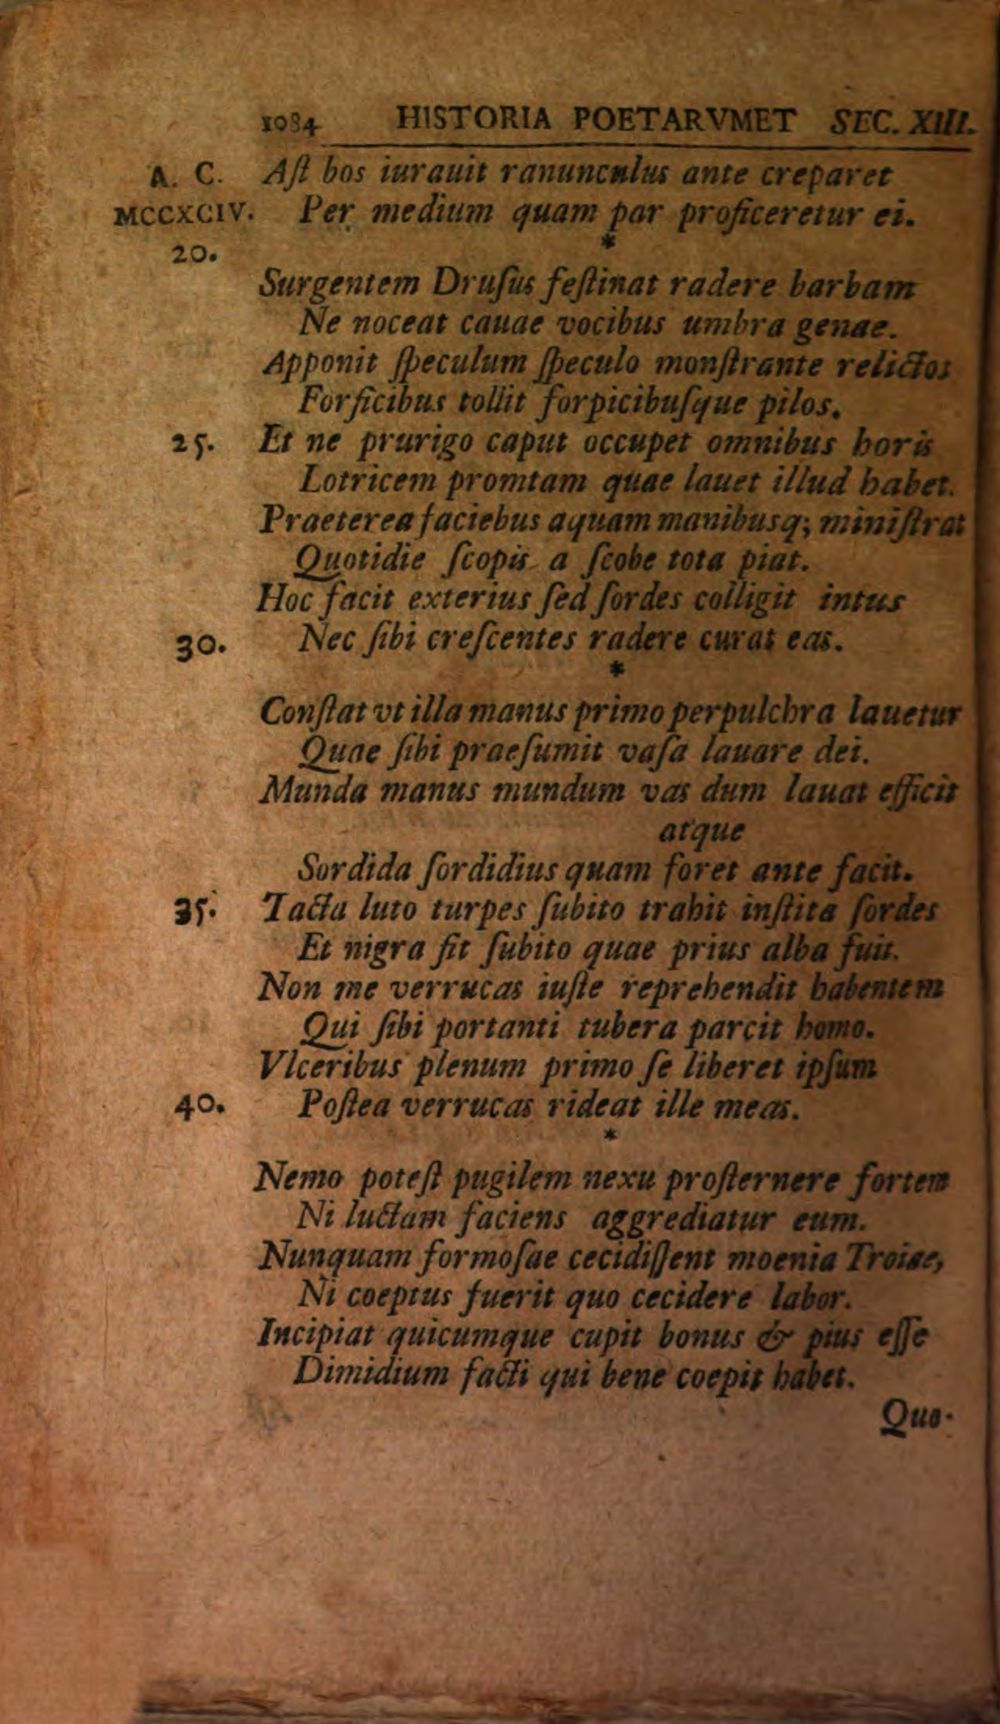 1084 HISTORIA POETARVMET SEC. XIII.
A. C. Aſt bos iurauit ranunculus ante creparet
MCCXCIV. Per medium quam par proficeretur ei.
*
20.
Surgentem Druſus feſtinat radere barbam
Ne noceat cauae vocibus umbra genae.
Apponit ſpeculum ſpeculo monſtrante relictos
Forficibus tollit forpicibuſque pilos.
25. Et ne prurigo caput occupet omnibus horis
Lotricem promtam quae lauet illud habet.
Praeterea faciebus aquam manibusq; miniſtrat
Quotidie ſcopis a ſcobe tota piat.
Hoc facit exterius ſed ſordes colligit intus
30. Nec ſibi creſcentes radere curat eas.
*
Conſtat vt illa manus primo perpulchra lauetur
Quae ſibi praeſumit vaſa lauare dei.
Munda manus mundum vas dum lauat efficit
atque
Sordida ſordidius quam foret ante facit.
35. Tacta luto turpes ſubito trahit inſtita ſordes
Et nigra fit ſubito quae prius alba fuit.
Non me verrucas iuſte reprehendit habentem
Qui ſibi portanti tubera parcit homo.
Vlceribus plenum primo ſe liberet ipſum
40. Poſtea verrucas rideat ille meas.
*
Nemo poteſt pugilem nexu proſternere fortem
Ni luctam faciens aggrediatur eum.
Nunquam formoſae cecidiſſent moenia Troiae,
Ni coeptus fuerit quo cecidere labor.
Incipiat quicumque cupit bonus & pius eſſe
Dimidium facti qui bene coepit habet.
Quo-